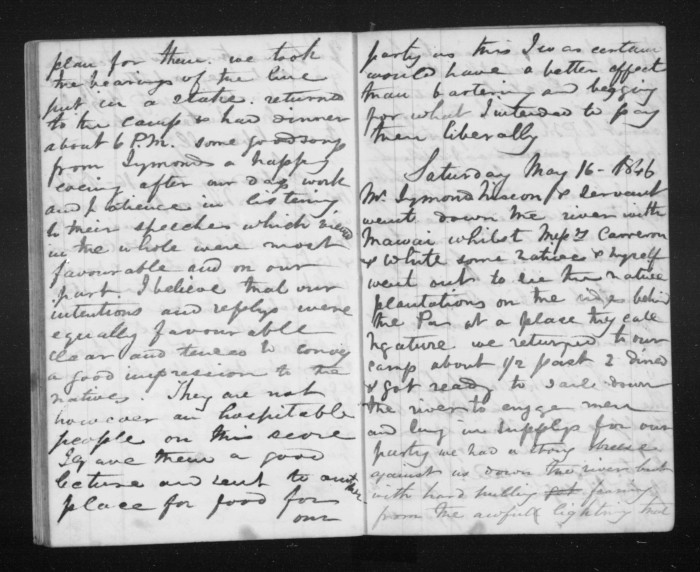 plan for them. we took
the bearings of the line
put in a stake. returned
to the camp & had dinner
about 6 P.M. some good songs
from Symonds a happy
evening after our days work
and patience in listening
to their speeches which
in the whole were most
favourable and on our
part. I believe that our
intentions and replys were
equally favourable
clear and to convey
a good impression to the
natives. They are not
however an hospitable
people on this score
I gave them a good
lecture and sent to another
place for food for
our
party as this I was certain
would have a better effect
than bartering and begging
for what I intended to pay
them liberally
Saturday May 16 - 1846
Mr. Symonds & Servant
went down the river with
Mawai whilst Messrs Cameron
& White some natives & myself
went out to see the native
plantations on the ridges behind
the Pa at a place they call
Ngature we returned to our
camp about 1/2 past 2 dined
& got ready to sail down
the river to engage men
and buy in supplys for our
party we had a strong breeze
against us down the river but
with hard pulling
from the awfull lightning that